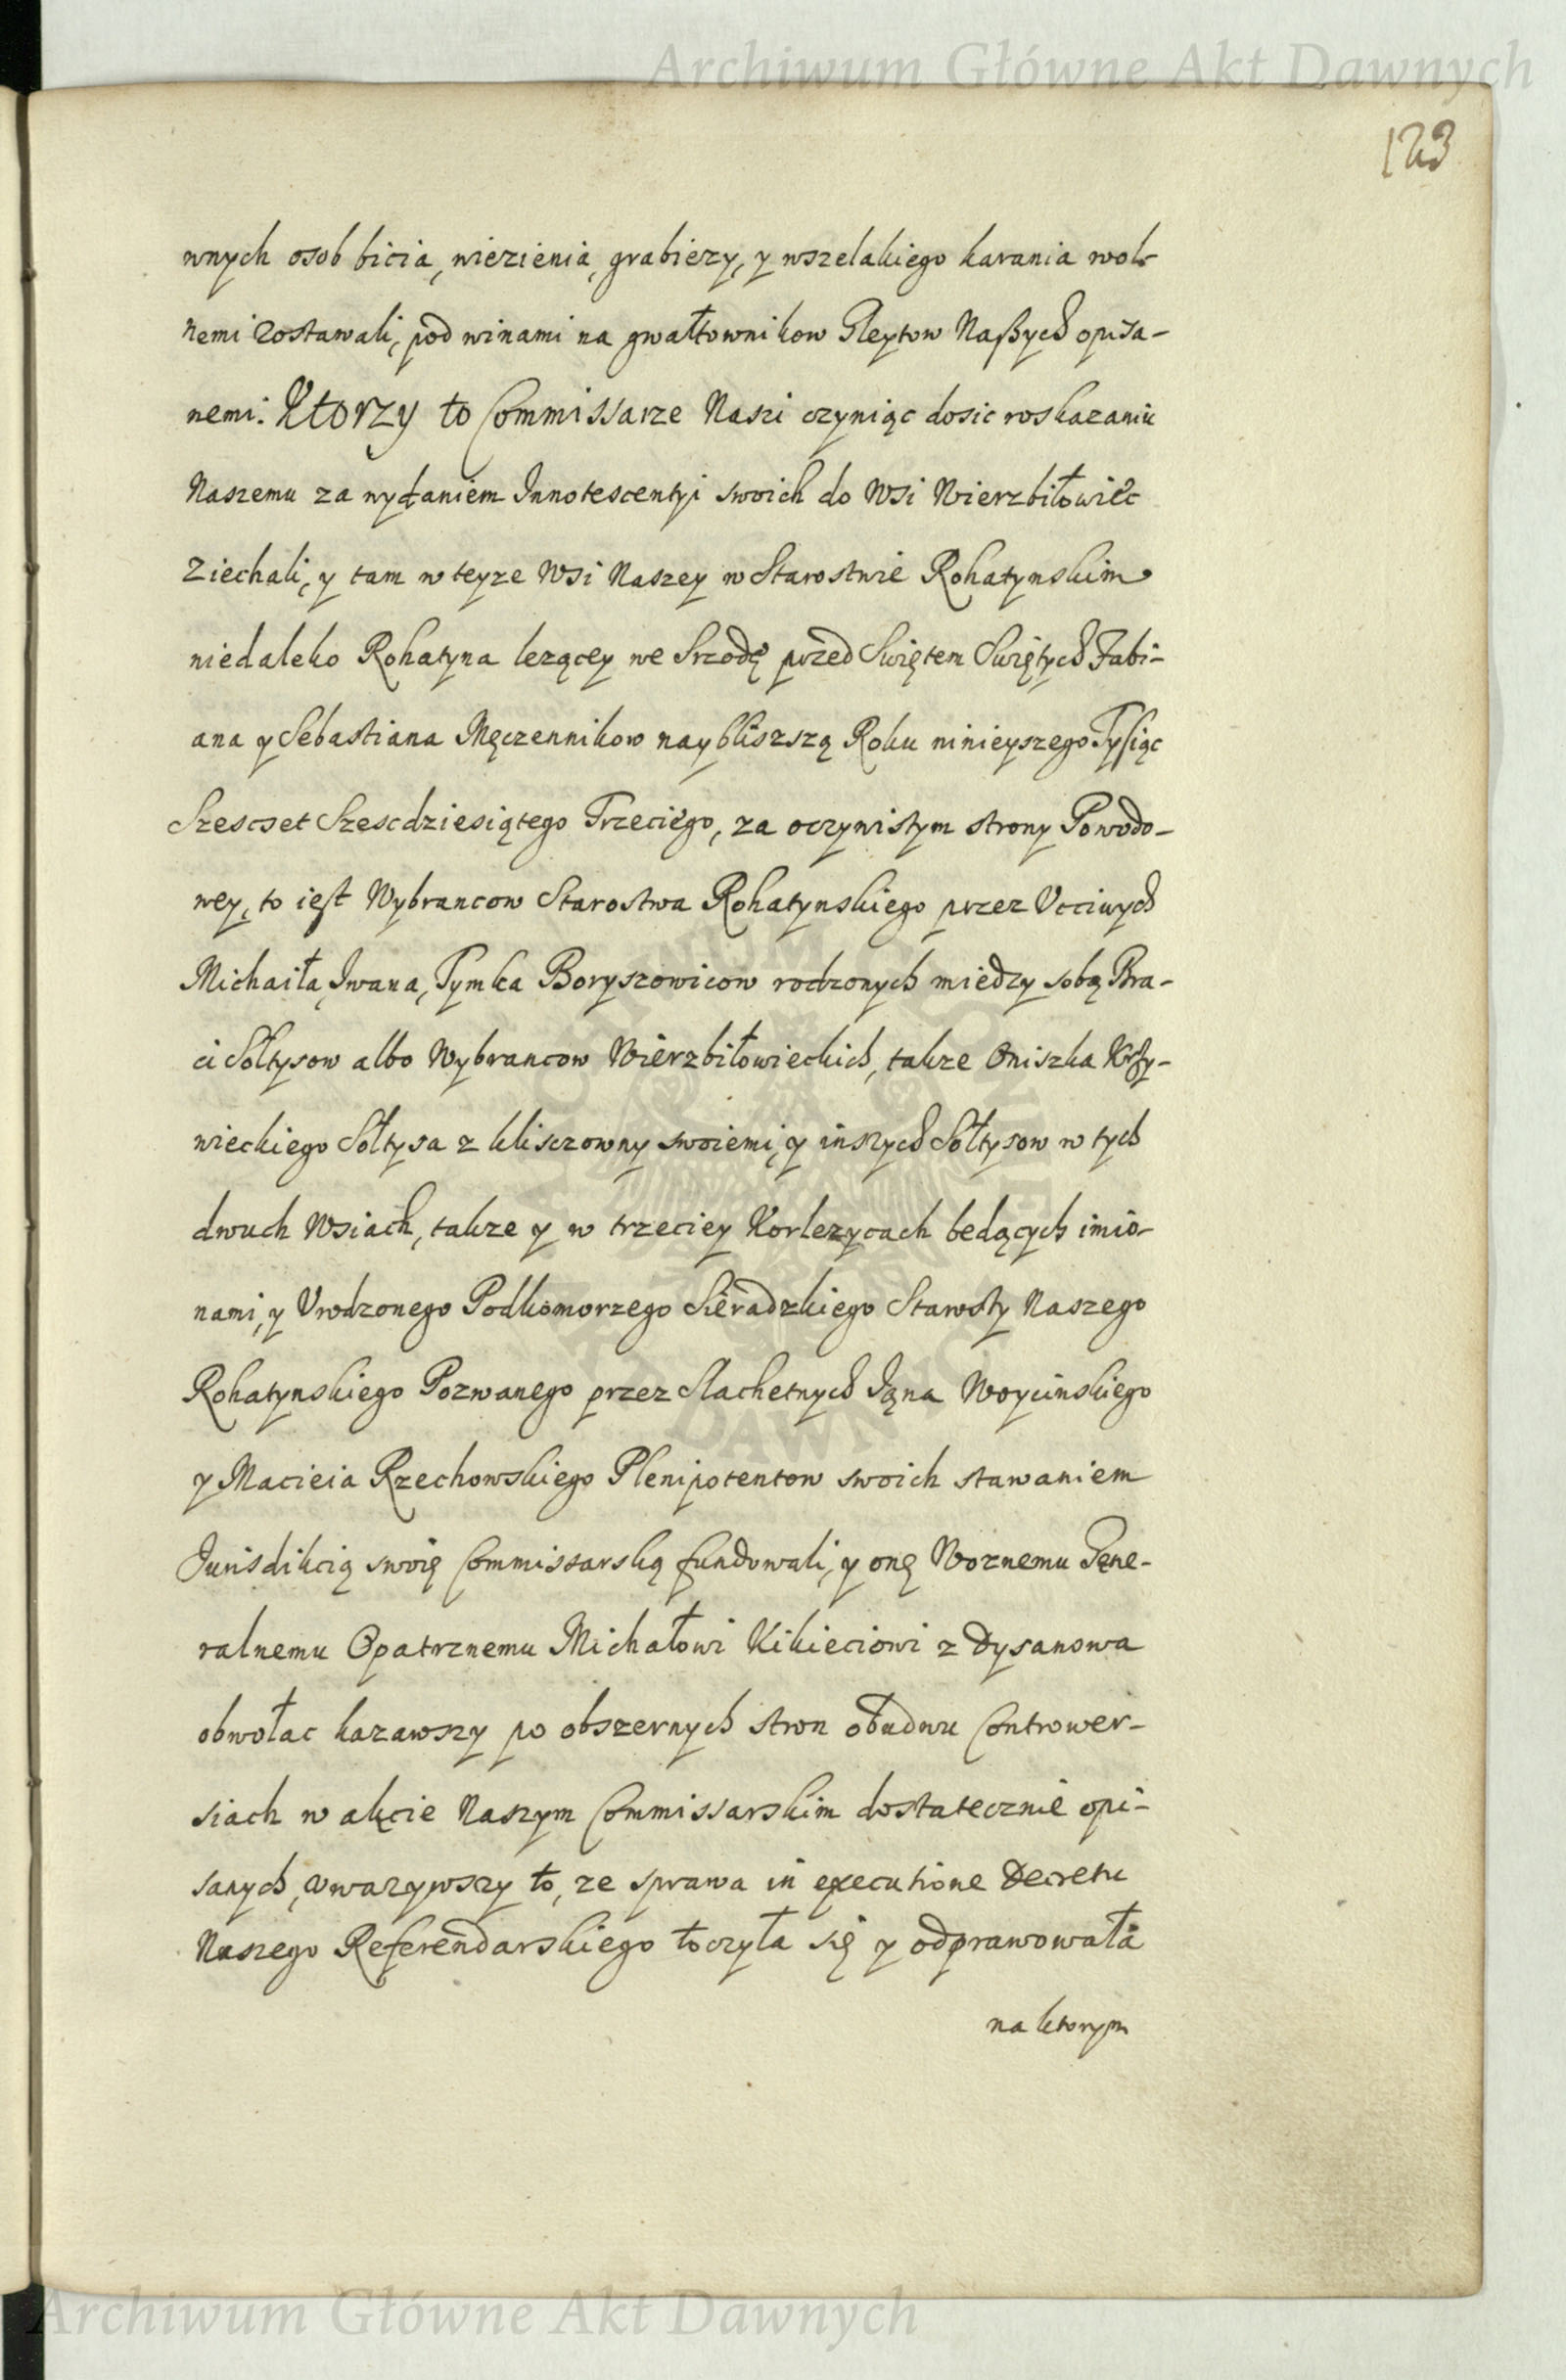 Archiwum Główne Akt Dawnych
123
wnych osob bicia, wiezienia, grabiezy, y wszelakiego karania wol-
nemi zostawali, pod winami na gwałtownikow Gleytow Naszych opisa-
nemi. Ktorzy to Commissarze Nasi czyniąc dosic roskazaniu
Naszemu za wydaniem Innotescentyi swoich do Wsi Wierzbiłowiec
Ziechali, y tam w teyze Wsi Naszey w Starostwie Rohatynskim
niedaleko Rohatyna lezącey we Srzodę przed Swiętem Swiętych Fabi-
ana y Sebastiana Męczennikow naybliszszą Roku ninieyszego Tysiąc
Szescset Szescdziesiątego Trzeciego, za oczywistym strony Powodo-
wey, to iest Wybrancow Starostwa Rohatynskiego przez Vcciwych
Michaiła, Iwana, Tymka Boryszowicow rodzonych miedzy sobą Bra-
ci Sołtysow albo Wybrancow Wierzbiłowieckich, takze Oniszka Krzy-
wieckiego Sołtysa z kliszczowny swoiemi, y inszych Sołtysow w tych
dwuch Wsiach, takze y w trzeciey Korlezycach bedących imio-
nami, y Vrodzonego Podkomorzego Sieradzkiego Starosty Naszego
Rohatynskiego Pozwanego przez Slachetnych Iana Woycinskiego
y Macieia Rzechowskiego Plenipotentow swoich stawaniem
Jurisdikcią swoię Commissarską fundowali, y onę Woznemu Gene-
ralnemu Opatrznemu Michałowi Kikieciowi z Dysanowa
obwołac kazawszy po obszernych stron obudwu Contrower-
siach w akcie Naszym Commissarskim dostatecznie opi-
sanych, vwazywszy to, ze sprawa in executione Decretu
Naszego Referendarskiego toczyła się y odprawowała
na ktorym
Archiwum Główne Akt Dawnych